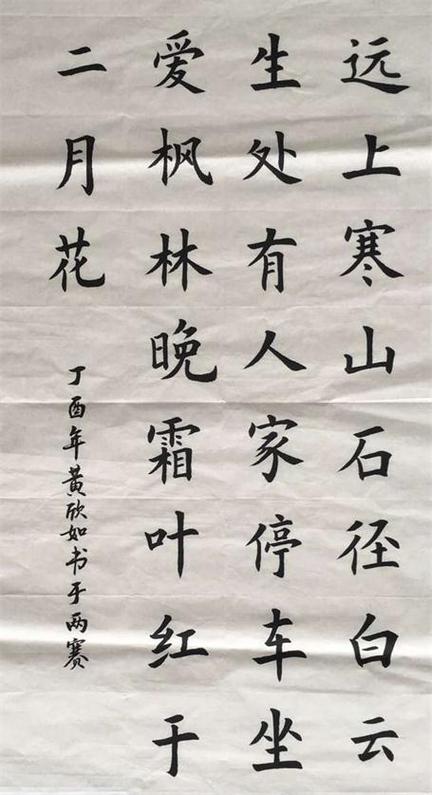 远上寒山石径白云
生处有人家停车坐
爱枫林晚霜叶红于
二月花
丁酉年黄欣如书于两赛